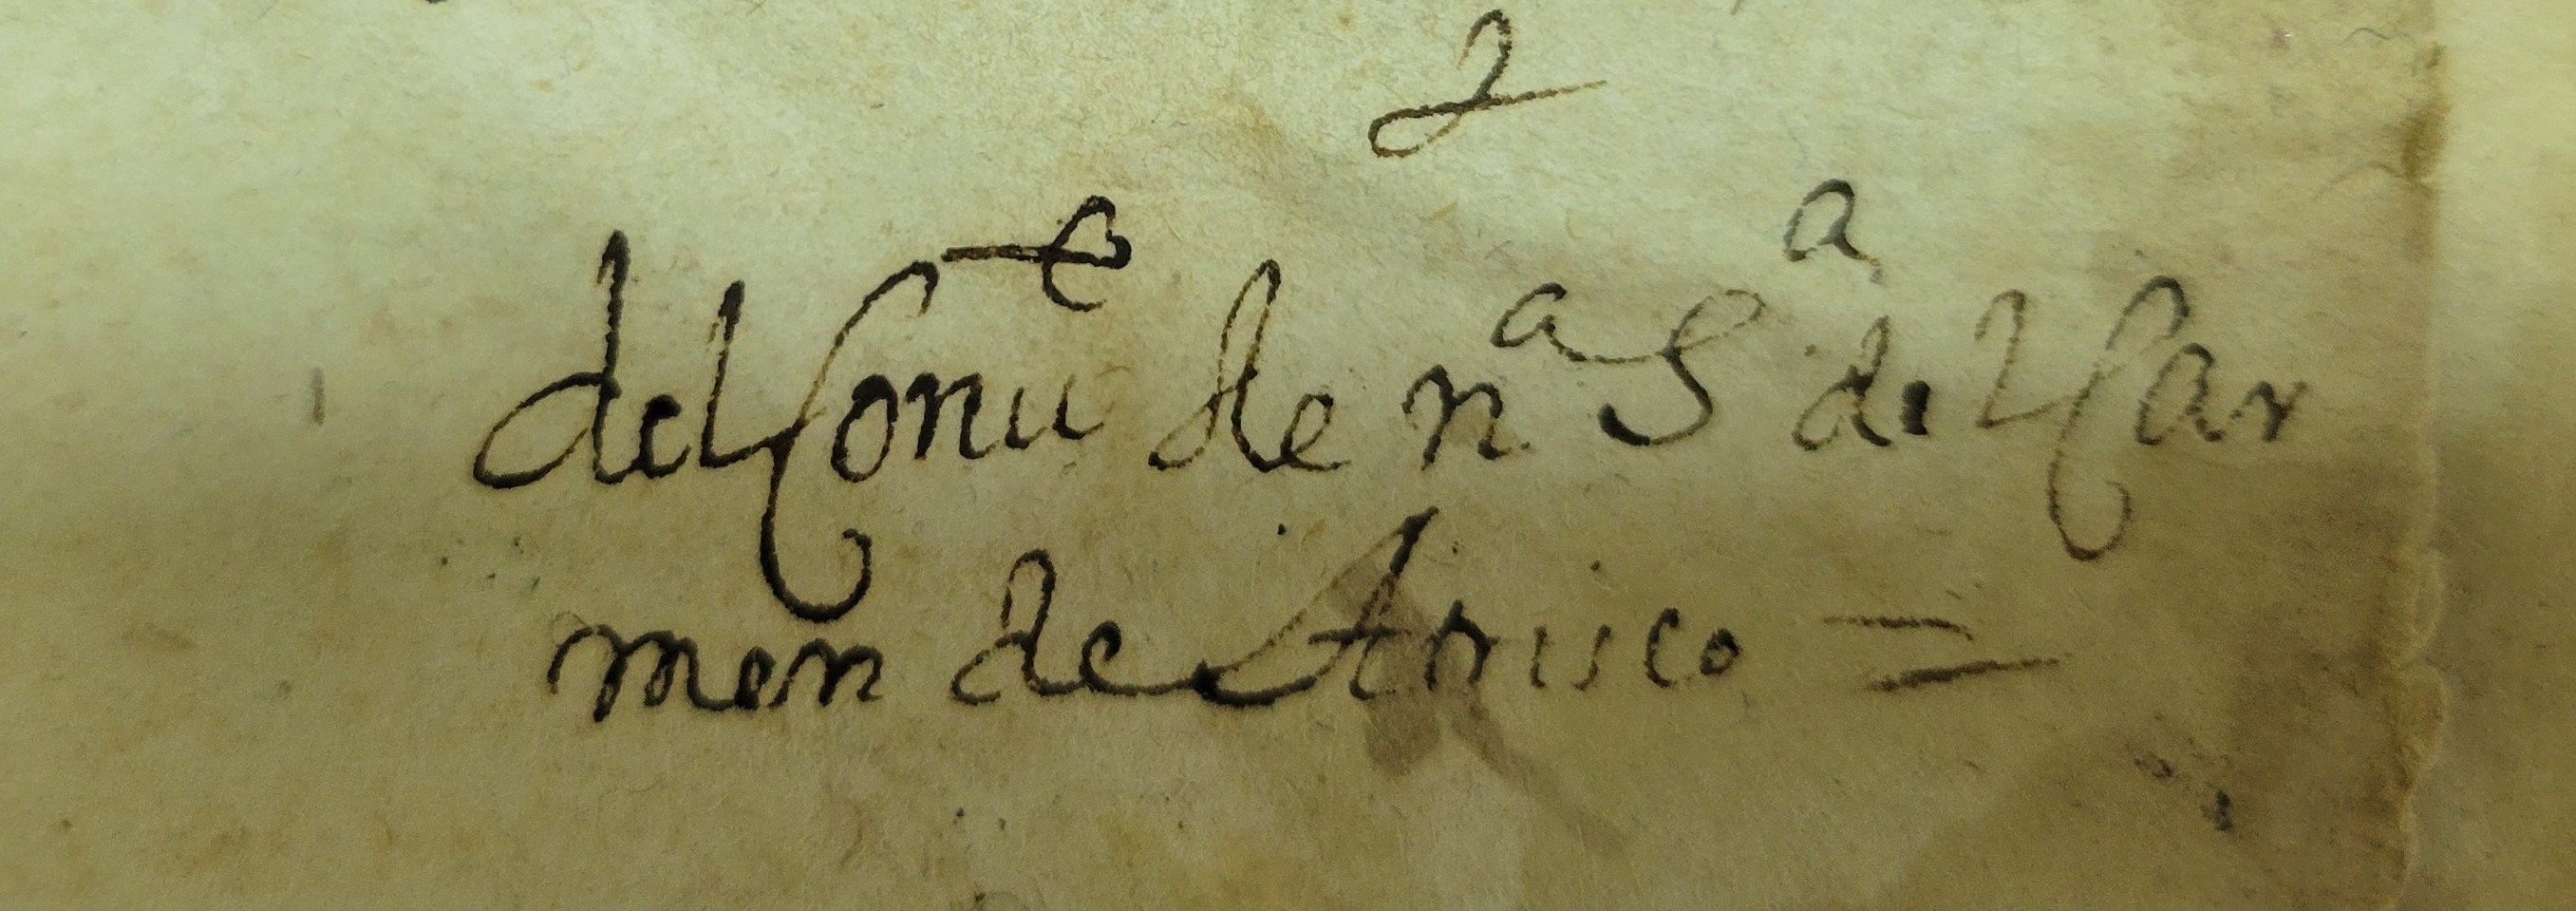 2
del Conu^e de n^a S^a del Car
men de Atrisco =